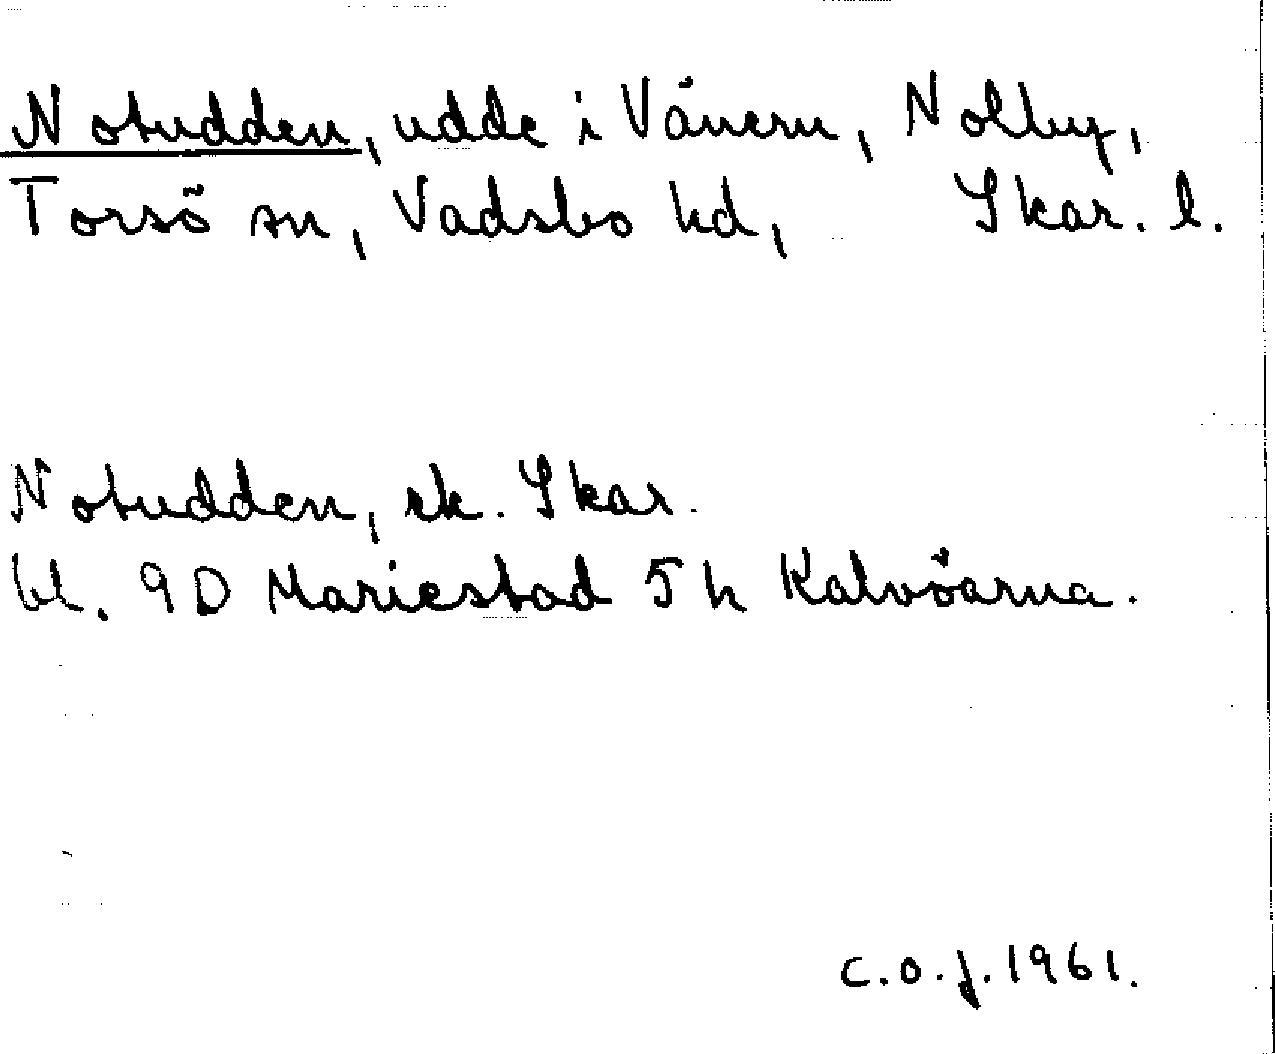 Notudden, udde i Vänern, Nolby,
Torsö sn, Vadsbo hd, Skar. l.
Notudden, ek. Skar.
bl. 9D Mariestad 5h Kalvöarna.
c.o.j. 1961.